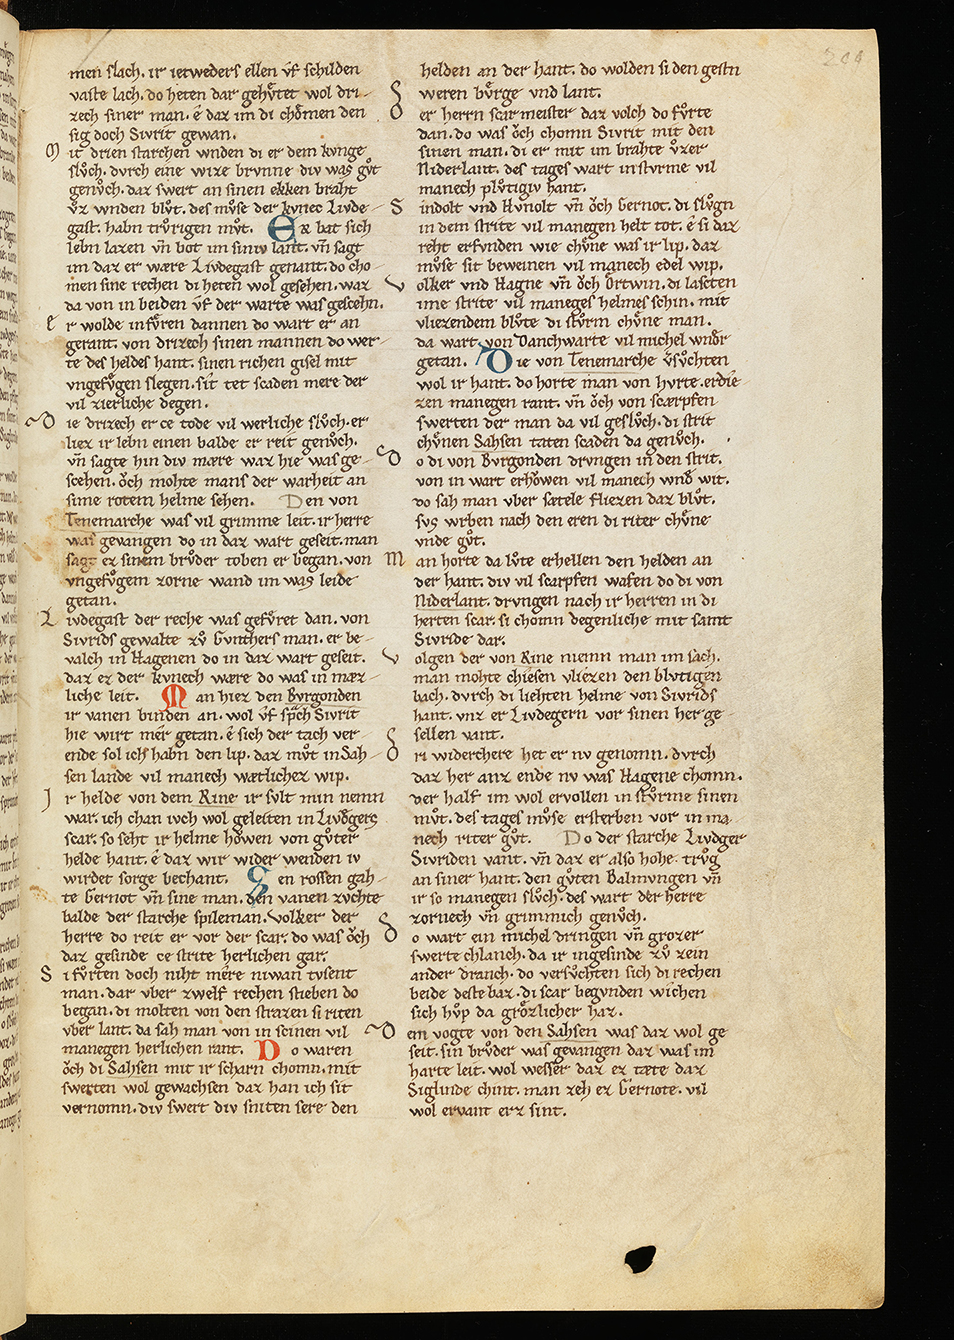 men slach. ir ietweders ellen v̂f schilden
vaste lach. do heten dar gehvͤtet wol dri-
zech siner man. ê daz im di chômen den
sig doch Sivrit gewan.
M it drien starchen wnden di er dem kvnge
slvͦch. dvrch eine wize brvnne div was gvͦt
genvͦch. daz swert an sinen ekken braht
v̂z wnden blvͦt. des mvͦse der kvnec Livde-
gast. habn trvͦrigen mvͦt. Ez bat sich
lebn lazen vn̄ bot im siniv lant. vn̄ sagt
im daz er wære Livdegast genant. do cho-
men sine rechen di heten wol gesehen. waz
da von in beiden v̂f der warte was gescehn.
e r wolde infvͤren dannen do wart er an
gerant. von drizech sinen mannen do wer-
te des heldes hant. sinen richen gisel mit
vngefvͤgen slegen. sit tet scaden mere der
vil zierliche degen.
D ie drizech er ce tode vil werliche slvͦch. er
liez ir lebn einen balde er reit genvͦch.
vn̄ sagte hin div mære waz hie was ge-
scehen. ôch mohte mans der warheit an
sime rotem helme sehen. Den von
Tenemarche was vil grimme leit. ir herre
was gevangen do in daz wart geseit. man
sagt ez sinem brvͦder toben er began. von
vngefvͤgem zorne wand im was leide
getan.
L ivdegast der reche was gefvͤret dan. von
Sivrids gewalte zvͦ Gvnthers man. er be-
valch in Hagenen do in daz wart geseit.
daz ez der kvnech wære do was in mæz-
liche leit. Man hiez den Bvrgonden
ir vanen binden an. wol v̂f sp̄ch Sivrit
hie wirt mer getan. ê sich der tach ver-
ende sol ich habn den lip. daz mvͤt in Sah-
sen lande vil manech wætlichez wip.
I r helde von dem Rine ir svlt min nemn
war. ich chan ivch wol geleiten in Livdgers
scar. so seht ir helme hôwen von gvͦter
helde hant. ê daz wir wider wenden iv
wirdet sorge bechant. Zen rossen gah-
te Gernot vn̄ sine man. den vanen zvchte
balde der starche spileman. Volker der
herre do reit er vor der scar. do was ôch
daz gesinde ce strite herlichen gar.
S i fvͦrten doch niht mere niwan tvsent
man. dar vber zwelf rechen stieben do
began. di molten von den strazen si riten
vber lant. da sah man von in scinen vil
manegen herlichen rant. Do waren
ôch di Sahsen mit ir scharn chomn. mit
swerten wol gewachsen daz han ich sit
vernomn. div swert div sniten sere den
helden an der hant. do wolden si den gestn
weren bvͤrge vnd lant.
D er herrn scarmeister daz volch do fvͦrte
dan. do was ôch chomn Sivrit mit den
sinen man. di er mit im brahte v̂zer
Niderlant. des tages wart in stvrme vil
manech plvͦtigiv hant.
S indolt vnd Hvnolt vn̄ ôch Gernot. di slvͦgn
in dem strite vil manegen helt tot. ê si daz
reht erfvnden wie chvͤne was ir lip. daz
mvͦse sit beweinen vil manech edel wip.
V olker vnd Hagne vn̄ ôch Ortwin. di lascten
ime strite vil maneges helmes schin. mit
vliezendem blvͦte di stvͤrm chvͤne man.
da wart von Danchwarte vil michel wnd̄r
getan. Die von Tenemarche v̄svͦchten
wol ir hant. do horte man von hvrte. erdie-
zen manegen rant. vn̄ ôch von scærpfen
swerten der man da vil geslvͦch. di strit
chvͤnen Sahsen taten scaden da genvͦch.
D o di von Bvrgonden drvngen in den strit.
von in wart erhôwen vil manech wnd̄ wit.
do sah man vber sætele fliezen daz blvͦt.
svs wrben nach den eren di riter chvͤne
vnde gvͦt.
M an horte da lvͦte erhellen den helden an
der hant. div vil scarpfen wafen do di von
Niderlant. drvngen nach ir herren in di
herten scar. si chomn degenliche mit samt
Sivride dar.
V olgen der von Rine niemn man im sach.
man mohte chiesen vliezen den blvtigen
bach. dvrch di liehten helme von Sivrids
hant. vnz er Livdegern vor sinen herge-
sellen vant.
D ri widerchere het er nv genomn. dvrch
daz her anz ende nv was Hagene chomn.
der half im wol ervollen in stvͤrme sinen
mvͦt. des tages mvͦse ersterben vor in ma-
nech riter gvͦt. Do der starche Livdger
Sivriden vant. vn̄ daz er also hohe trvͦg
an siner hant. den gvͦten Balmvngen vn̄
ir so manegen slvͦch. des wart der herre
zornech vn̄ grimmich genvͦch.
D o wart ein michel dringen vn̄ grozer
swerte chlanch. da ir ingesinde zvͦ zein
ander dranch. do versvͦchten sich di rechen
beide deste baz. di scar begvnden wichen
sich hvͦp da grôzlicher haz.
D em vogte von den Sahsen was daz wol ge
seit. sin brvͦder was gevangen daz was im
harte leit. wol wesser daz ez tæte daz
Siglinde chint. man zeh ez Gernote. vil
wol ervant erz sint.